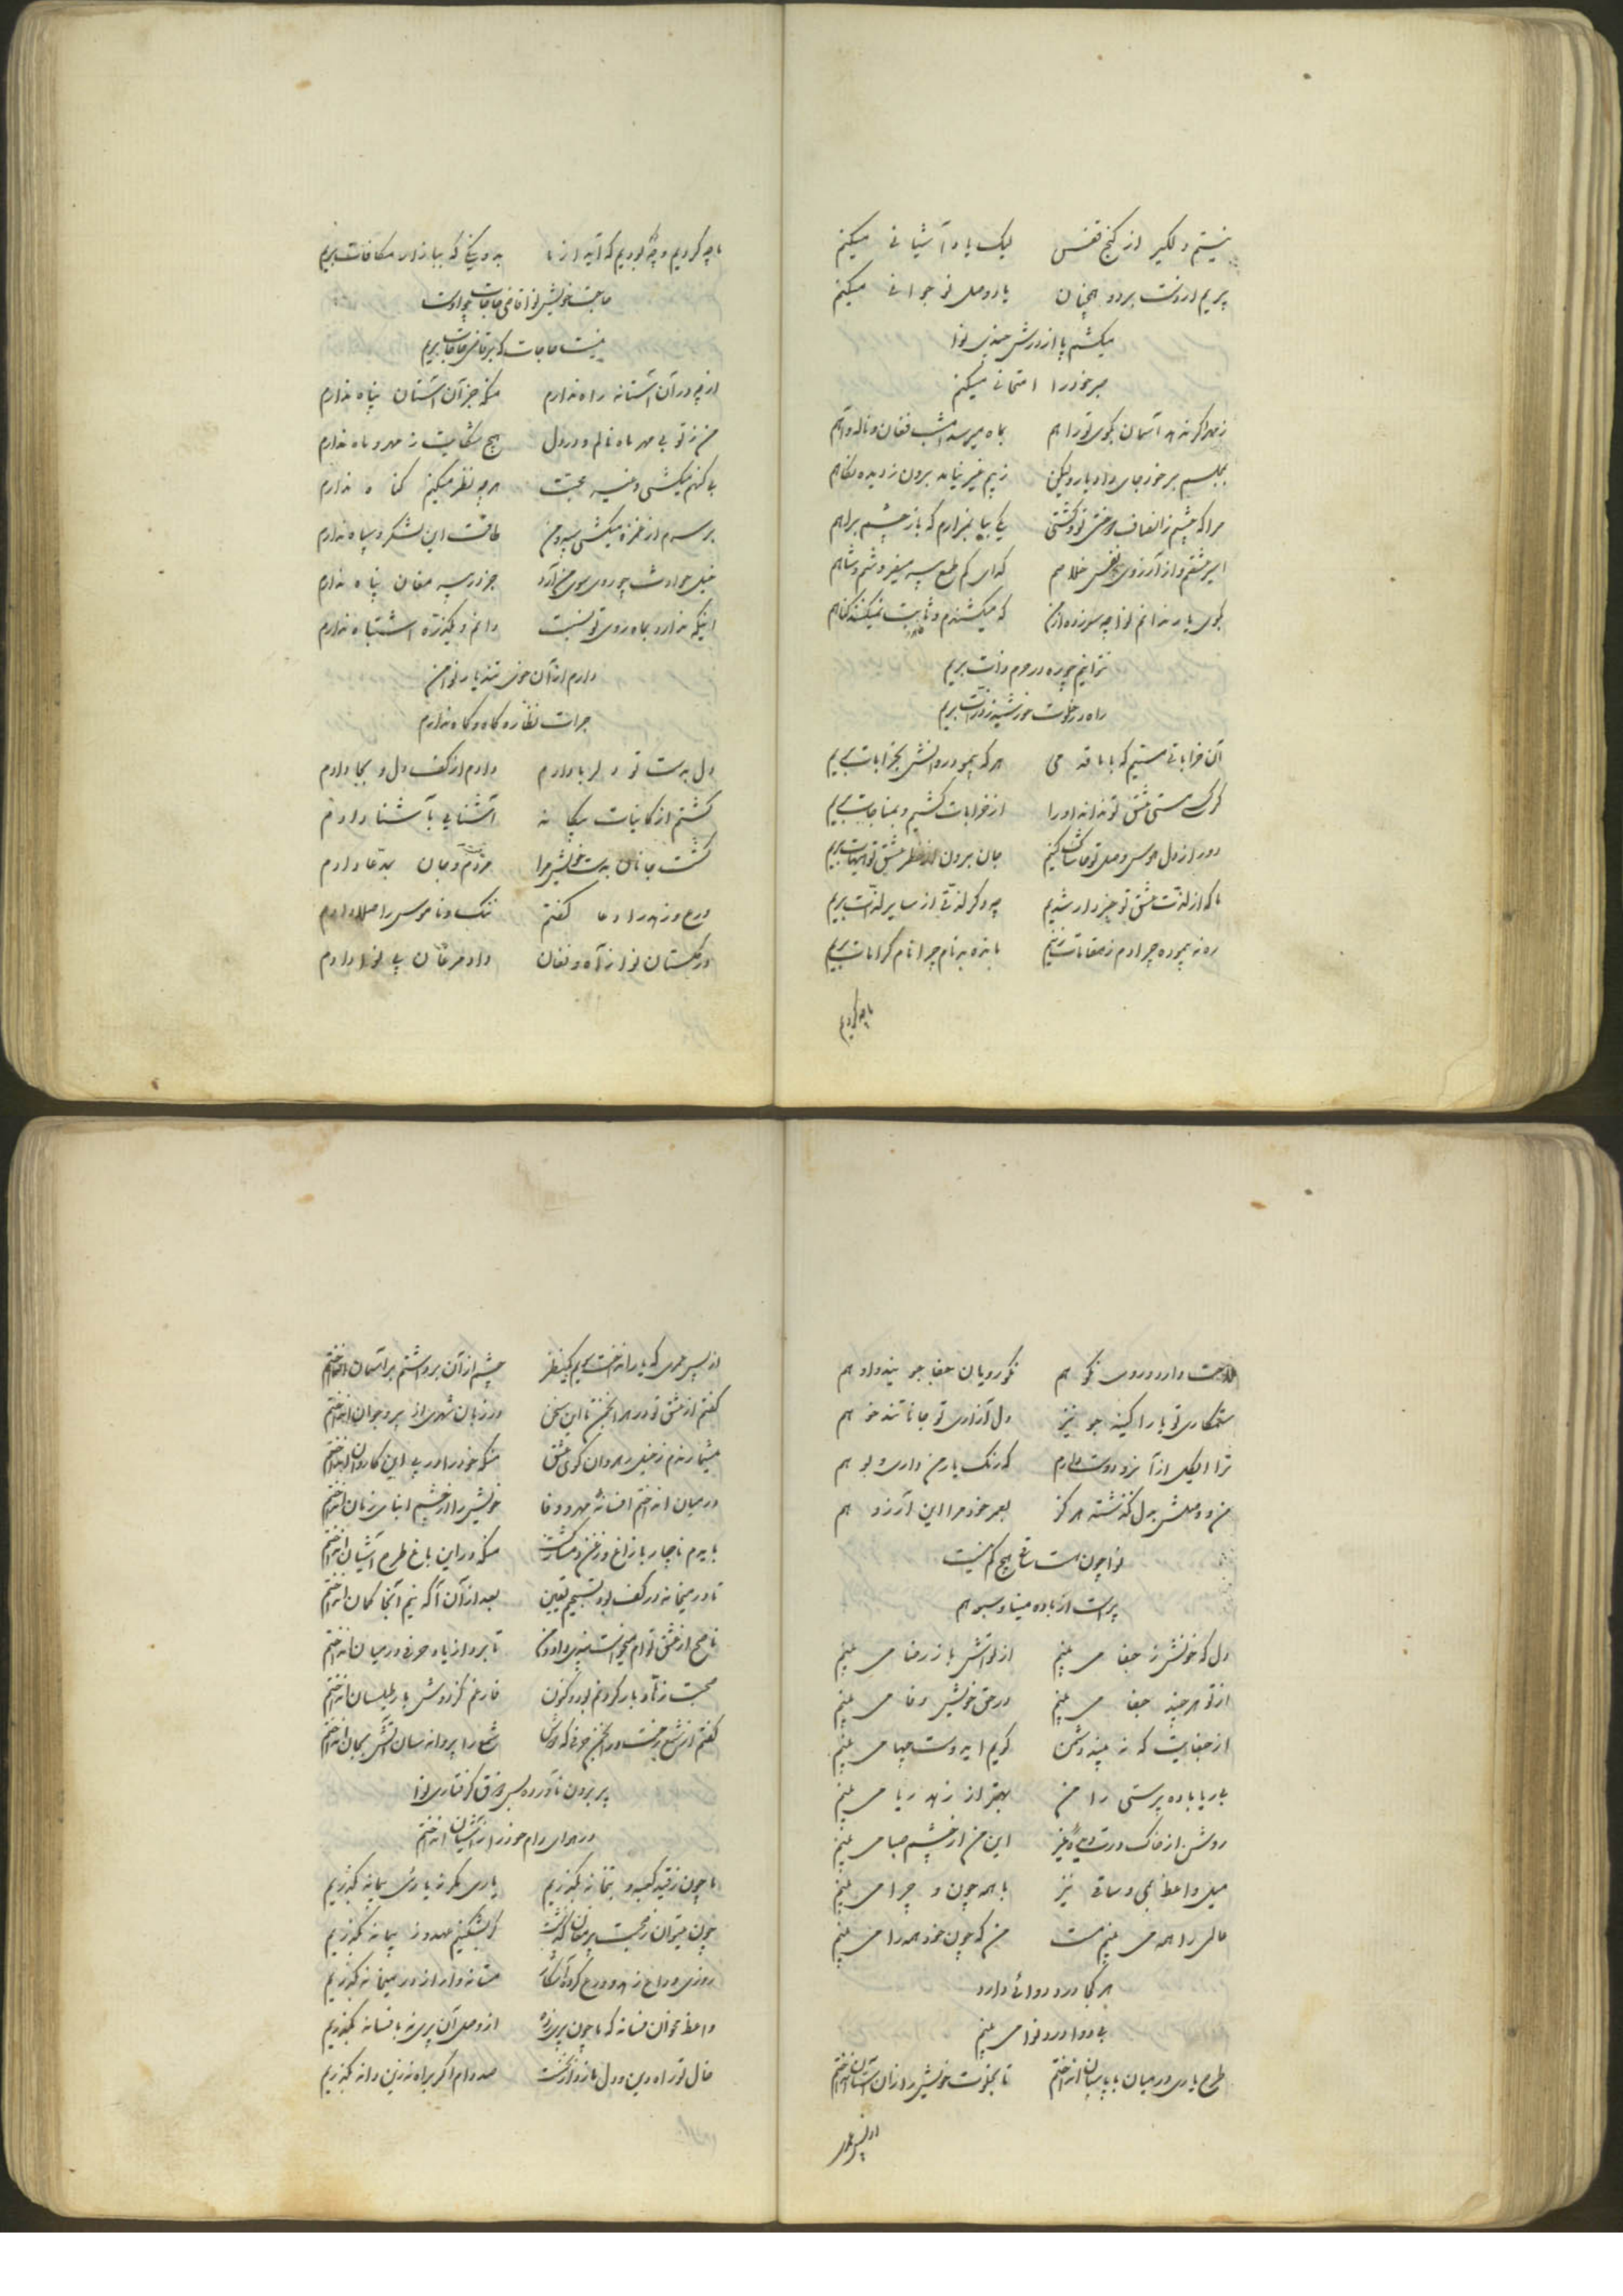 نیستم دلگیر از کنج قفس لیک یاد آشیانی میکنم
پیریم از دست برد و همچنان یاد وصل نوجوانی میکنم
میکشم پا از درش چندی نوا
صبر خود را امتحانی میکنم
ز بهر آنکه نه آسمان بکوی تو راهم بماه میرسد امشب فغان و ناله و آهم
بمجلسم بر خود جای داد یار ولیکن ز بیم غیر نیاید برون ز دیده نگاهم
مرا که چشم ز انصاف دوختی تو و کشتی یکی بیا بمزارم که باز چشم براهم
اسیر عشقم و از آرزوی نفس خلاصم گدای کم طمع سیم میفروشم و شاهم
بکوی یار ندانم نوا چه سر زده از من که میکشندم و ثابت نمیکنند گناهم
نتوانیم چو ره در حرم ذات بریم
راه در خلوت خورشید ز ذرات بریم
آن خراباتی مستیم که با ما قدمی هر که پیمود روانش بخرابات بریم
گر کسی مستی عشق تو نداند او را از خرابات کشیم و بمناجات بریم
دور از دل هوس وصل تو حاشا که کنیم جان برون از خطر عشق تو هیهات بریم
ما که از لذت عشق تو خبردار شدیم چه دگر لذتی از سایر لذات بریم
ره نه پیموده چرا دم ز مقامات زنیم ما نزده بدنام چرا نام کرامات بریم
ما چه کردیم
ما چه کردیم و چه بودیم که آید از ما بد و نیکی که ببازار مکافات بریم
حاجت خویش نوا قاضی حاجات چو اوست
نیست حاجات که بر قاضی حاجات بریم
از چه در آن آستانه راه ندارم منکه جز آن آستان پناه ندارم
من ز تو بی مهر ماه نالم و در دل هیچ شکایت ز مهر و ماه ندارم
بی گنهم میکشی و غیر محبت هر چه نظر میکنم گناه ندارم
بر سرم از غمزه میکشی سپه و من طاقت این لشکر و سپاه ندارم
خیل حوادث چو روی سوی من آرد جز در پیر مغان پناه ندارم
اینکه ندارد بماه روی تو نسبت دانم و یکذره اشتباه ندارم
دارم از آن خوی تند یار نوا من
جرات نظاره گاه و گاه ندارم
دل بدست تو دلربا دادم دادم از کف دل و بجا دادم
گشتم از کاینات بیگانه آشنایی بآشنا دادم
کشت جانان بدست خویش مرا مزدم و جان بمدعا دادم
ورع و زهد را دعا گفتم ننگ و ناموس را صلا دادم
در گلستان نوا ز آه و فغان داد مرغان بی نوا دادم
ملاحت دارد و روی نکو هم نکورویان جفا جویند و او هم
ستمکاری تو یارا کینه جو نیز دل آزاری تو جانا تندخو هم
ترا ای گل از آنرو دوست دارم که رنگ یار من داری و بو هم
من و وصلش بدل نگذشته هرگز بعمر خود مرا این آرزو هم
نوا چون هست ساغر هیچ کم نیست
پر است از باده مینا و سبو هم
دل که خونش ز جفا می بینم از تواش باز رضا می بینم
از تو هر چند جفا می بینم در حق خویش وفا می بینم
از جفایت که نه بیند دشمن گویم ایدوست چها می بینم
بی ریا باده پرستی را من بهتر از زهد ریا می بینم
روشن از خاک درت دیده نیز این من از چشم صبا می بینم
میل واعظ بمی و ساقی نیز با همه چون و چرا می بینم
حالی را همه می بینم مست من که چون خود همه را می بینم
هر کجا درد دوائی دارد
بی دوا درد نوا می بینم
طرح یاری در میان با پاسبان انداختم تا بخلوت خویش را زان آستان انداختم
از پس عمری
از پس عمری که یار انداخت بریم یکنظر چشم از آن برداشتم بر آسمان انداختم
گفتم از عشق تو در هر انجمن تا این سخن در زبان شهری از پیر و جوان انداختم
میشمارندم ز خیل رهروان کوی عشق منکه خود را در پی این کاروان انداختم
در میان انداختم افسانه مهر و وفا خویش را از چشم ابنای زمان انداختم
بایدم ناچار با زاغ و زغن دمساز گشت منکه در این باغ طرح آشیان انداختم
تا در میخانه در کف بود تسبیحم یقین بعد از آن آگه نیم آنجا گمان انداختم
ناصح از عشق توام میخواست پندی داد و من تا برد از یاد حرفی در میان انداختم
صحبت زنار بار گردنم بود و کنون فارغم کز دوش بار طیلسان انداختم
گفتم از شمع رخت در انجمن حرفی که دوش شمع را پروانه سان آتش بجان انداختم
پر برون ناورده بس ذوق گرفتاری نوا
در هوای دام خود را ز آشیان انداختم
ما چون ز قید کعبه و بتخانه بگذریم یاری مگر نه یاری به بیمانه بگذریم
چون میتوان ز صحبت پیر مغان گذشت گر بشکنیم عهد و ز پیمانه بگذریم
روزی وداع زهد و ورع کرده آشکار مستانه وار از در میخانه بگذریم
واعظ مخوان فسانه که ما چون پری زده از وصل آن پری نه بافسانه بگذریم
خال تو راه دین و دل ما زد از نخست صد دام اگر براه نه زین دانه بگذریم